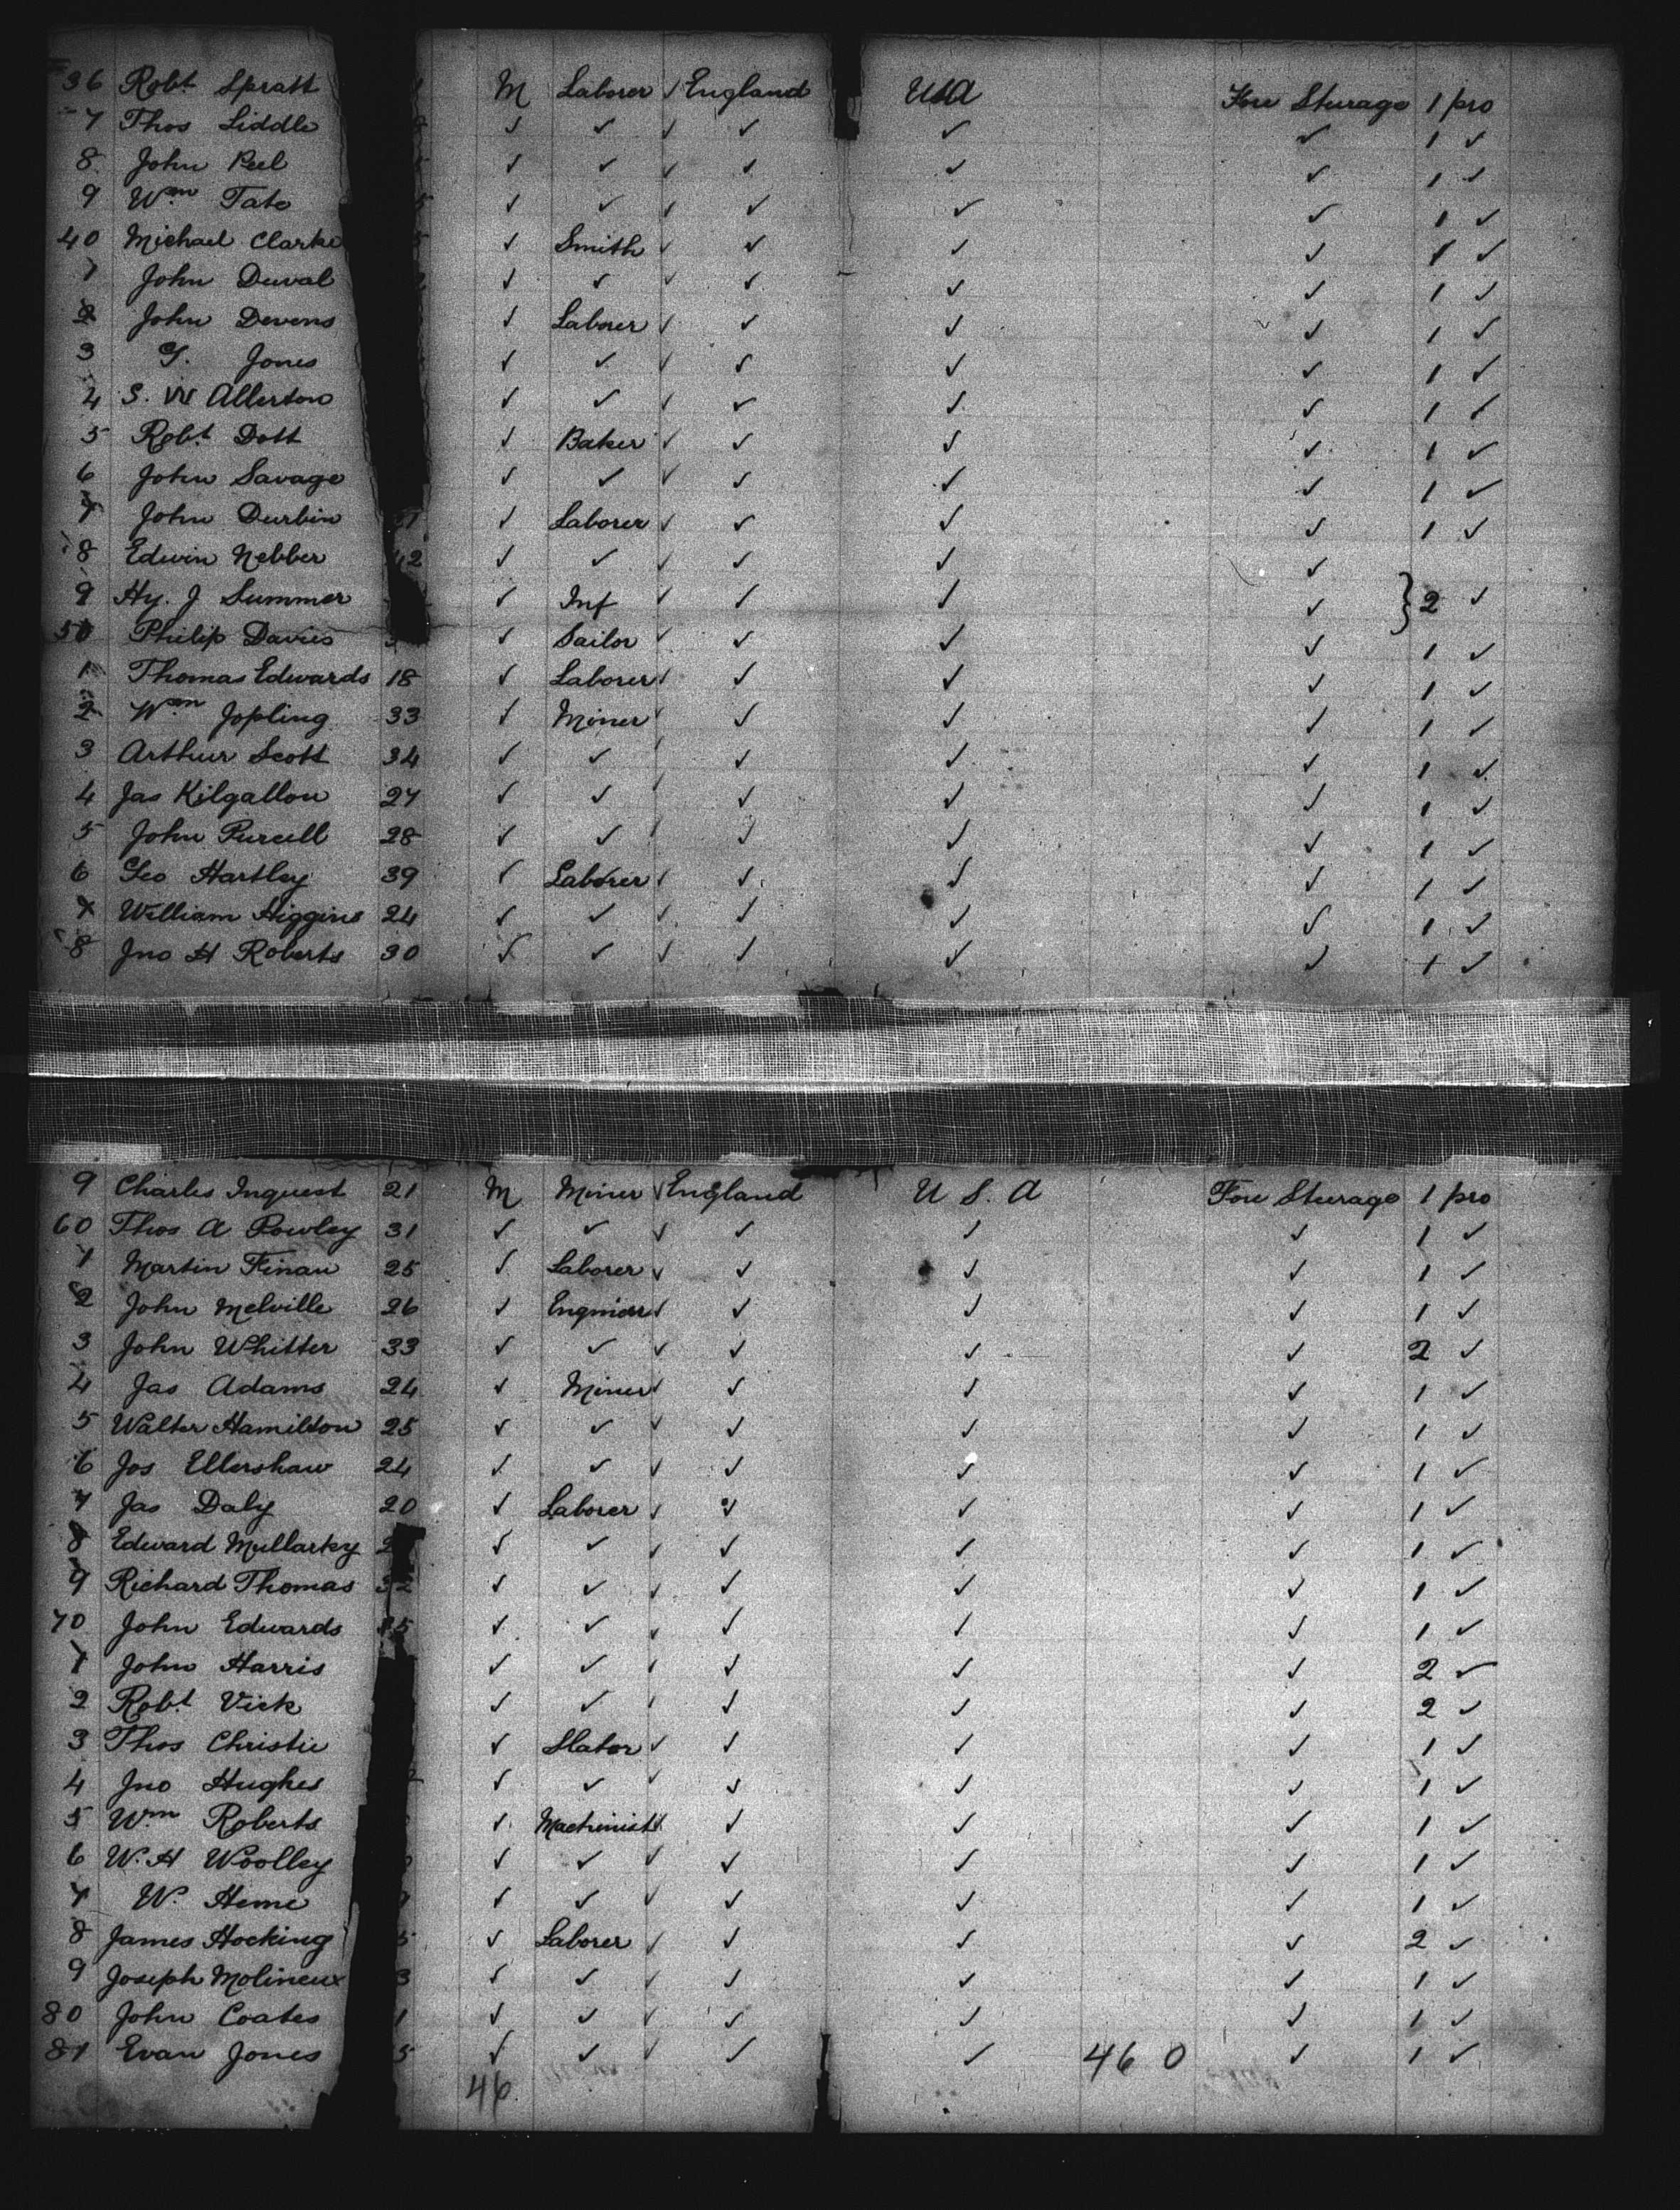 36 Robt Spratt M Laborer ✓ England USA Fore Sturage 1 pro
7 Thos Liddle 8 ✓ ✓ ✓ ✓ ✓ ✓ 1 ✓
8 John Peel ✓ ✓ ✓ ✓ ✓ ✓ 1 ✓
9 Wm Tate 5 ✓ ✓ ✓ ✓ ✓ ✓ 1 ✓
40 Michael Clarke 5 ✓ Smith ✓ ✓ ✓ ✓ 1 ✓
1 John Duval 2 ✓ ✓ ✓ ✓ ✓ ✓ 1 ✓
2 John Devens ✓ Laborer ✓ ✓ ✓ ✓ 1 ✓
3 Jones ✓ ✓ ✓ ✓ ✓ ✓ 1 ✓
4 S. W Allerton ✓ ✓ ✓ ✓ ✓ ✓ 1 ✓
5 Robt Dott ✓ Baker ✓ ✓ ✓ ✓ 1 ✓
6 John Savage ✓ ✓ ✓ ✓ ✓ ✓ 1 ✓
7 John Durbin ✓ Laborer ✓ ✓ ✓ ✓ 1 ✓
8 Edwin Nebber 42 ✓ ✓ ✓ ✓ ✓ ✓
9 Hy. J Summer ✓ Inf ✓ ✓ ✓ ✓ } 2 ✓
50 Philip Davies ✓ Sailor ✓ ✓ ✓ ✓ 1 ✓
1 Thomas Edwards 18 ✓ Laborer ✓ ✓ ✓ ✓ 1 ✓
2 Wm Jopling 33 ✓ Miner ✓ ✓ ✓ ✓ 1 ✓
3 Arthur Scott 34 ✓ ✓ ✓ ✓ ✓ ✓ 1 ✓
4 Jas Kilgallon 27 ✓ ✓ ✓ ✓ ✓ 1 ✓
5 John Purcell 28 ✓ ✓ ✓ ✓ ✓ ✓ 1 ✓
6 Geo Hartley 39 ✓ Laborer ✓ ✓ ✓ ✓ 1 ✓
7 William Higgins 24 ✓ ✓ ✓ ✓ ✓ ✓ 1 ✓
8 Jno H Roberts 30 ✓ ✓ ✓ ✓ ✓ ✓ 1 ✓
9 Charles Inquest 21 M Miner ✓ England U S. A Fore Sturage 1 pro
60 Thos A Rowley 31 ✓ ✓ ✓ ✓ ✓ ✓ 1 ✓
1 Martin Finan 25 ✓ Laborer ✓ ✓ ✓ ✓ 1 ✓
2 John Melville 26 ✓ Engineer ✓ ✓ ✓ ✓ 1 ✓
3 John Whitter 33 ✓ ✓ ✓ ✓ ✓ ✓ 2 ✓
4 Jas Adams 24 ✓ Miner ✓ ✓ ✓ ✓ 1 ✓
5 Walter Hamilton 25 ✓ ✓ ✓ ✓ ✓ ✓ 1 ✓
6 Jos Ellershaw 24 ✓ ✓ ✓ ✓ ✓ ✓ 1 ✓
7 Jas Daly 20 ✓ Laborer ✓ ✓ ✓ ✓ 1 ✓
8 Edward Mullarky 2 ✓ ✓ ✓ ✓ ✓ ✓ 1 ✓
9 Richard Thomas 32 ✓ ✓ ✓ ✓ ✓ ✓ 1 ✓
70 John Edwards 5 ✓ ✓ ✓ ✓ ✓ ✓ 1 ✓
1 John Harris ✓ ✓ ✓ ✓ ✓ ✓ 2 ✓
2 Robt Vick ✓ ✓ ✓ ✓ ✓ ✓ 2 ✓
3 Thos Christie ✓ Slator ✓ ✓ ✓ ✓ 1 ✓
4 Jno Hughes 2 ✓ ✓ ✓ ✓ ✓ ✓ 1 ✓
5 Wm Roberts ✓ Machinist ✓ ✓ ✓ ✓ 1 ✓
6 W. H Woolley ✓ ✓ ✓ ✓ ✓ ✓ 1 ✓
7 W. Heme ✓ ✓ ✓ ✓ ✓ ✓ 1 ✓
8 James Hocking 5 ✓ Laborer ✓ ✓ ✓ ✓ 2 ✓
9 Joseph Molineux 3 ✓ ✓ ✓ ✓ ✓ ✓ 1 ✓
80 John Coates 1 ✓ ✓ ✓ ✓ ✓ ✓ 1 ✓
81 Evan Jones 5 ✓ ✓ ✓ ✓ ✓ 46 0 ✓ 1 ✓
46